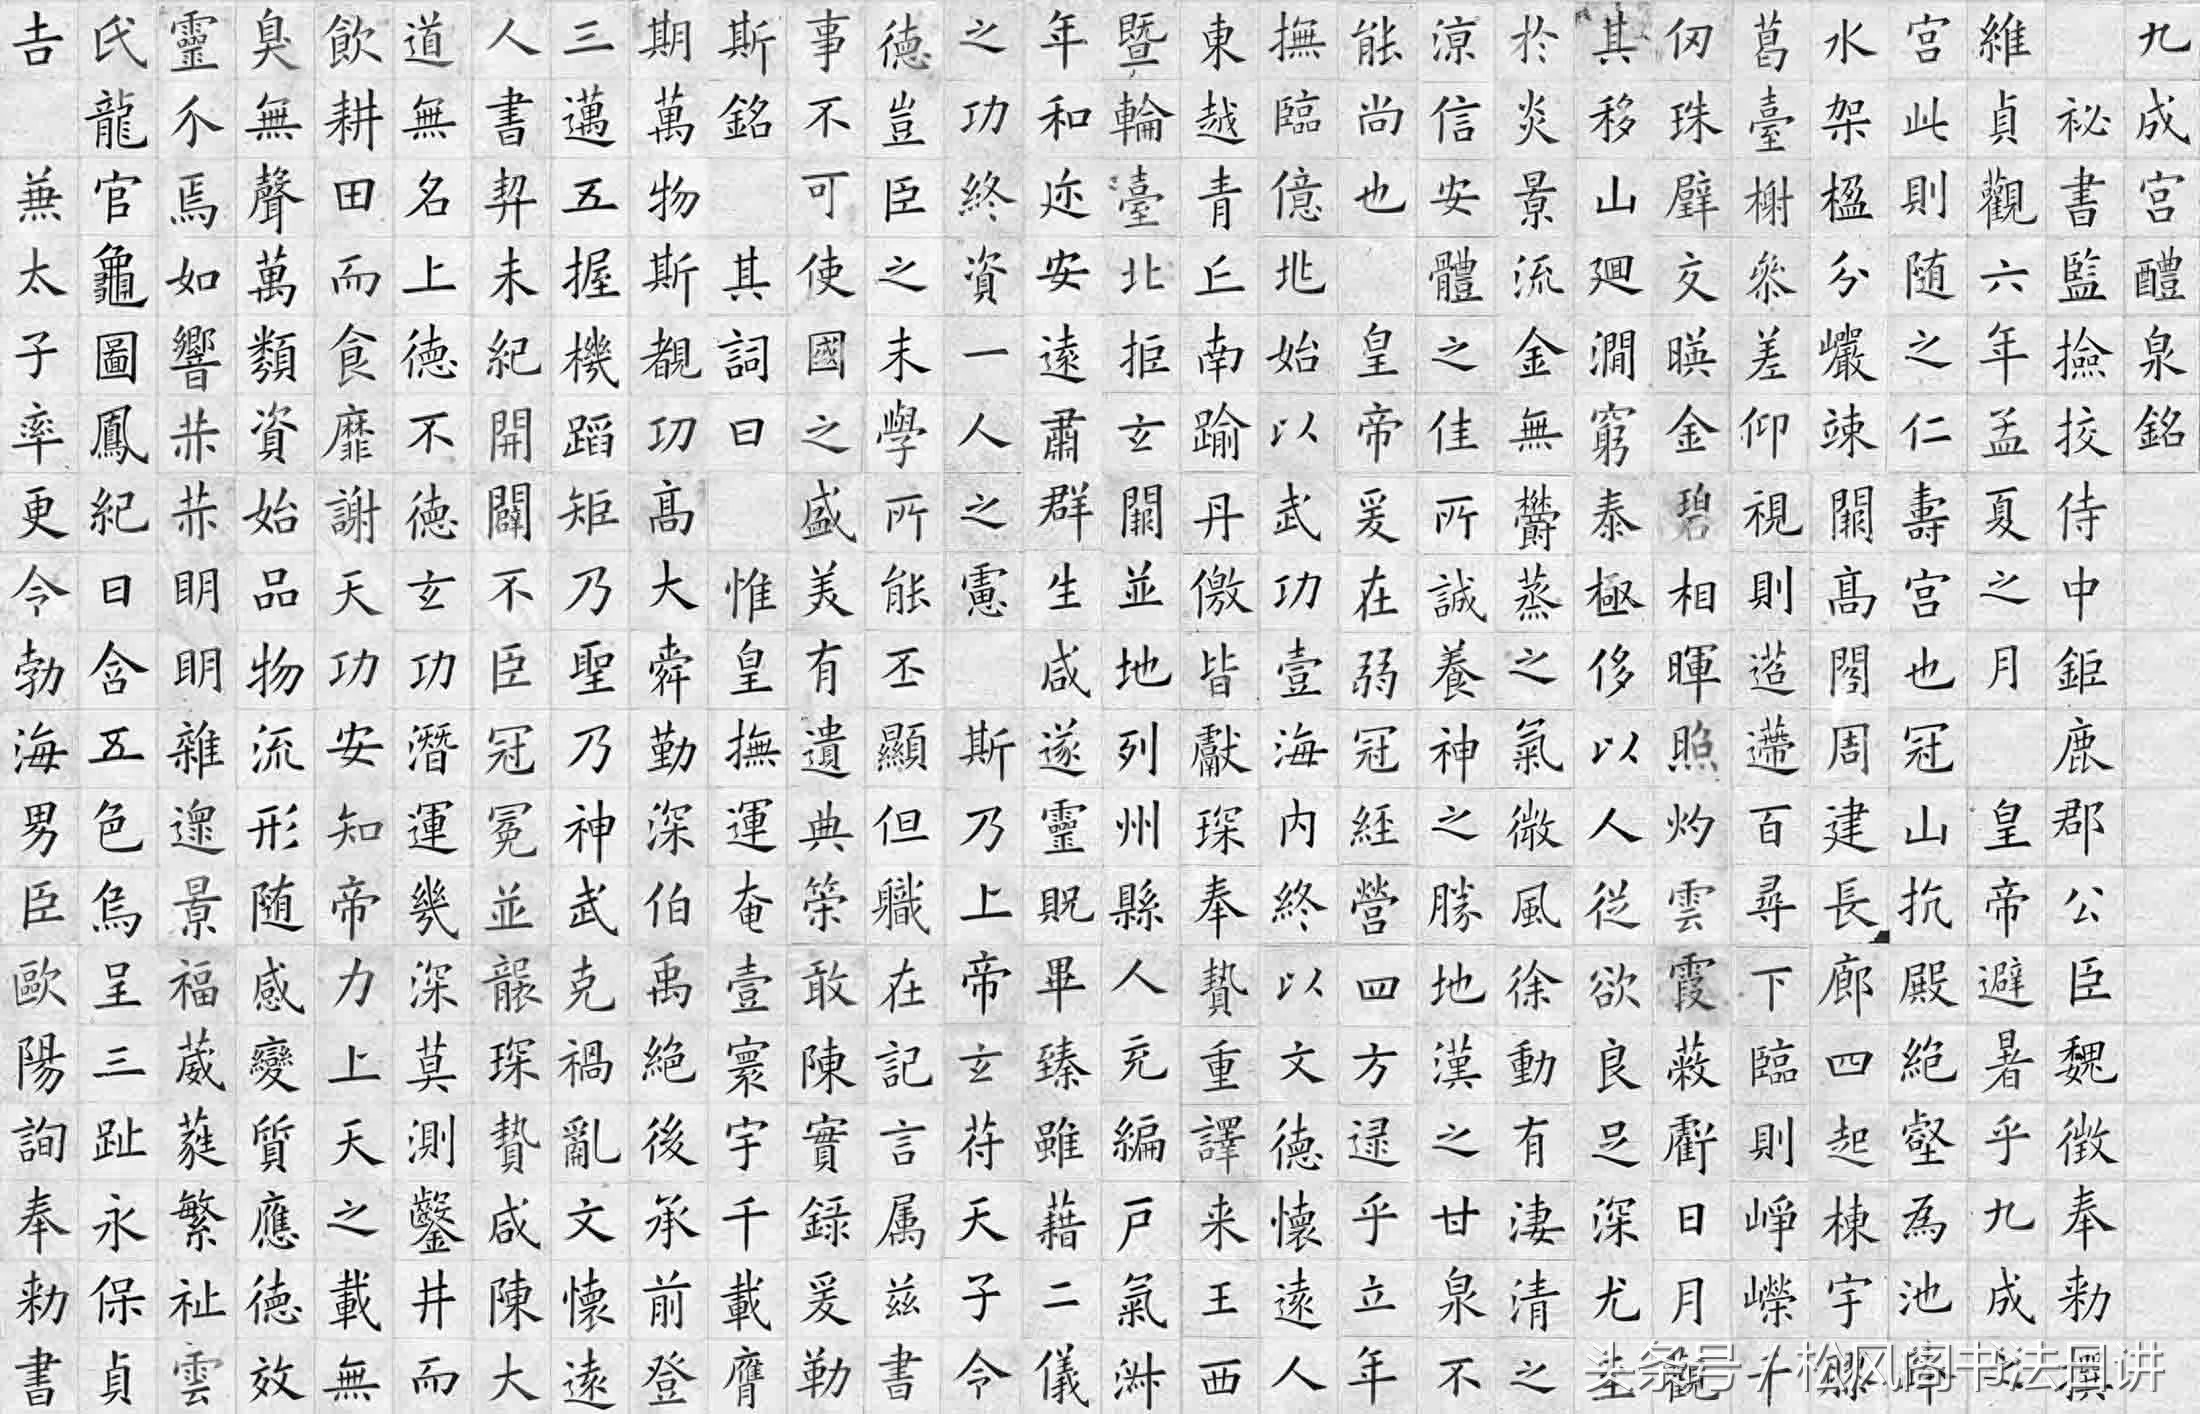 九成宮醴泉銘
祕書監撿挍侍中鉅鹿郡公臣魏徵奉勑撰
維貞觀六年孟夏之月 皇帝避暑乎九成
宮此則随之仁壽宮也冠山抗殿絕壑為池
水架楹分巖竦闕高閣周建長廊四起棟宇膠
葛臺榭參差仰視則迢遰百尋下臨則崢嶸千
仞珠璧交暎金碧相暉照灼雲霞蔽虧日月觀
其移山廻澗窮泰極侈以人從欲良足深尤至
於炎景流金無鬱蒸之氣微風徐動有淒清之
涼信安體之佳所誠養神之勝地漢之甘泉不
能尚也 皇帝爰在弱冠經營四方逮乎立年
撫臨億兆始以武功壹海內終以文德懷遠人
東越青丘南踰丹儌皆獻琛奉贄重譯来王西
暨輪臺北拒玄闕並地列州縣人充編戶氣淑
年和迩安遠肅群生咸遂靈貺畢臻雖藉二儀
之功終資一人之慮 斯乃上帝玄符天子令
德豈臣之末學所能丕顯但職在記言属茲書
事不可使國之盛美有遺典策敢陳實錄爰勒
斯銘 其詞曰 惟皇撫運奄壹寰宇千載膺
期萬物斯覩功高大舜勤深伯禹絕後承前登
三邁五握機蹈矩乃聖乃神武克禍亂文懷遠
人書契未紀開闢不臣冠冕並襲琛贄咸陳大
道無名上德不德玄功潛運幾深莫測鑿井而
飲耕田而食靡謝天功安知帝力上天之載無
臭無聲萬類資始品物流形随感變質應德效
靈介焉如響赫赫明明雜遝景福葳蕤繁祉雲
氏龍官龜圖鳳紀日含五色烏呈三趾永保貞
吉 兼太子率更令勃海男臣歐陽詢奉勑書
头条号 / 松风阁书法日讲